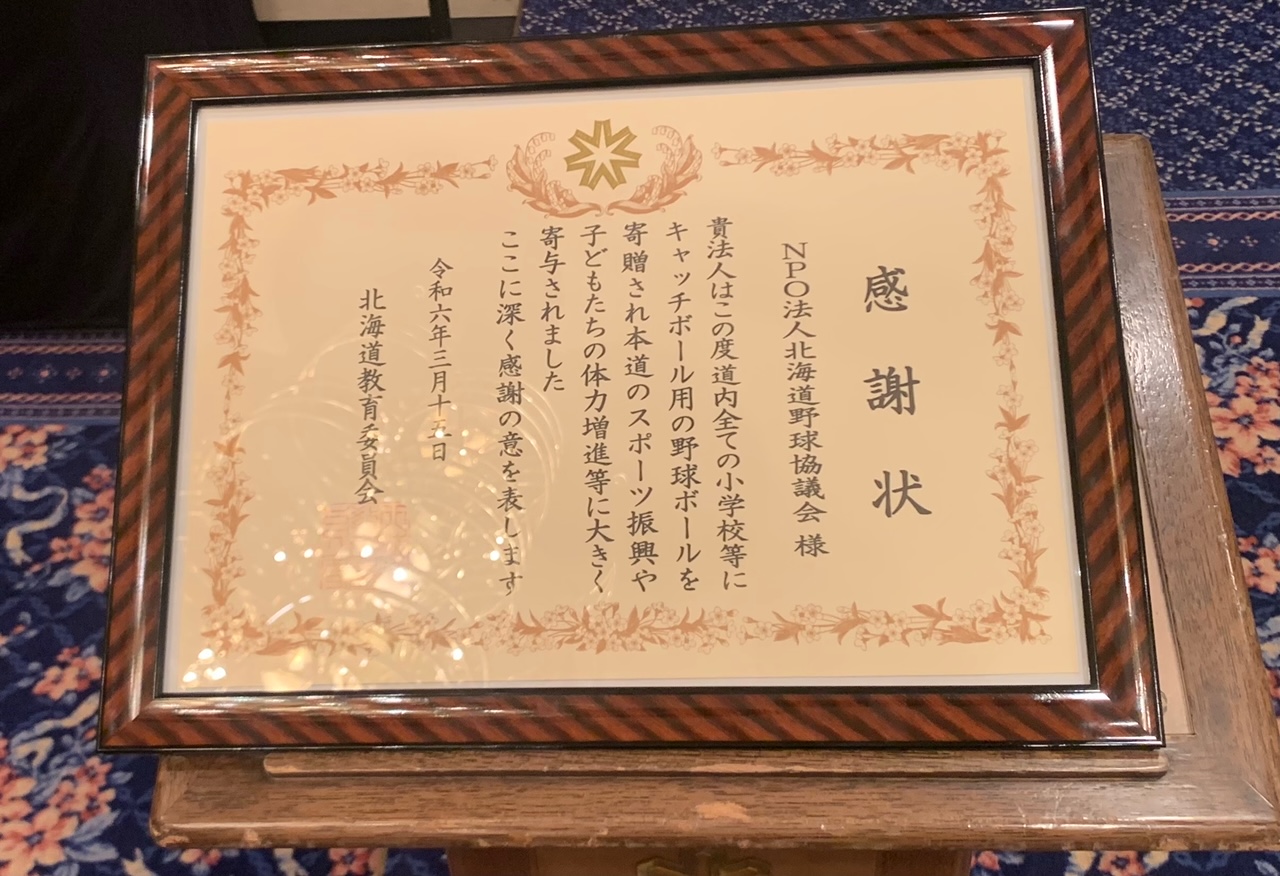 感謝状
NPO法人北海道野球協議会 様
貴法人はこの度道内全ての小学校等に
キャッチボール用の野球ボールを
寄贈され本道のスポーツ振興や
子どもたちの体力増進等に大きく
寄与されました
ここに深く感謝の意を表します
令和六年三月十五日
北海道教育委員会